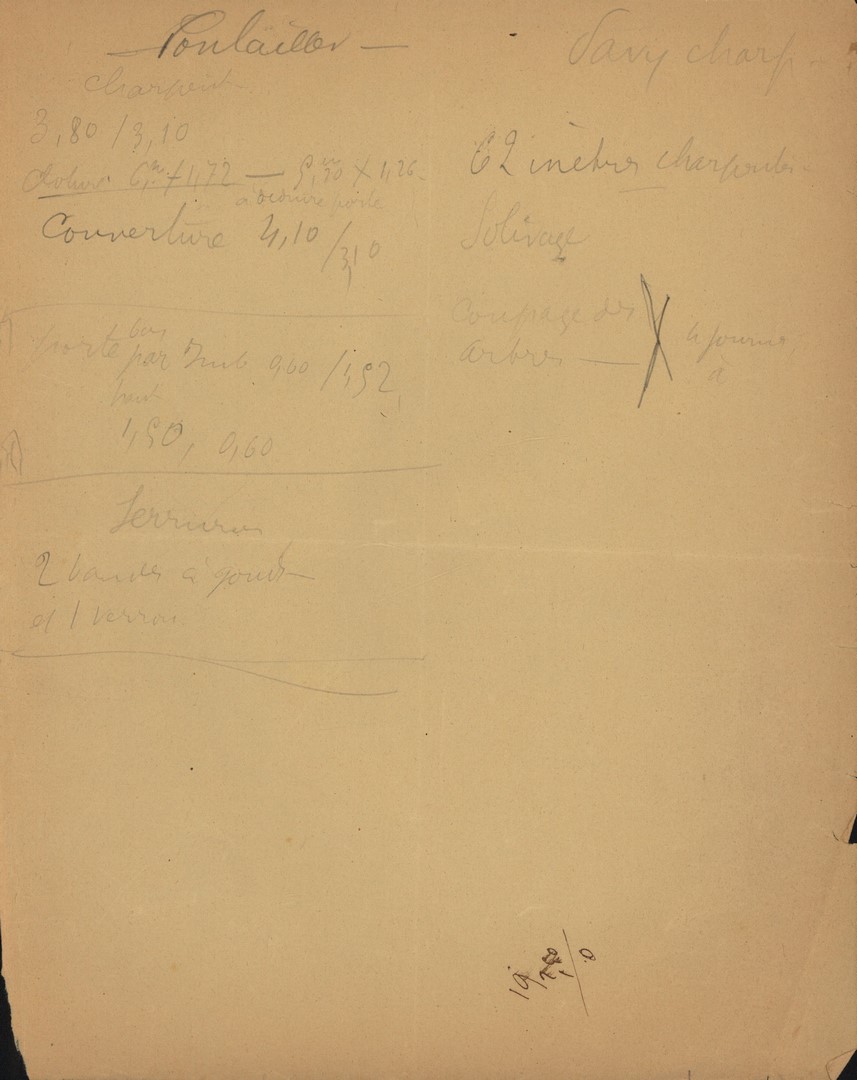 — Poulailler —
Charpente
3,80 / 3,10
Cloture 6,m × 1,72 — 5,m20 × 1,26
a déduire porte
Couverture 4,10 / 3,10
porte bas par 0,60 / 1,52
haut
1,50, 0,60
Serrures
2 bandes à gonds
et 1 verrou
Savy charp
62 mètres charpente
Solivage
Coupage des
arbres — 4 journé
à